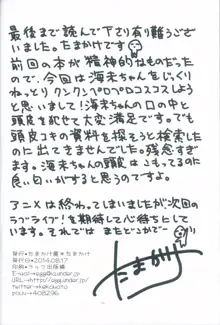 最後まで読んで下さり有り難うござ
いました。たまかけです
前回の本が精神的なものだった
ので、今回は海未ちゃんをじっくり
ねっとり クンクンペロペロコスコスしよう
と思いまして！海未ちゃんの口の中と
頭皮を絵せて大変満足です。でも
頭皮コキの資料を探そうと検索した
のに出てきませんでした。残念すぎ
ます。海未ちゃんの頭皮はこもってるのに
良い匂いがすると思うのですよ
アニメは終わってしまいましたが次回の
ラブライブ！を期待して心待ちとして
います。それでは またどこかで〜
たまかけ
発行*たまかけ屋*たまかけ
発行日*2014.08.17